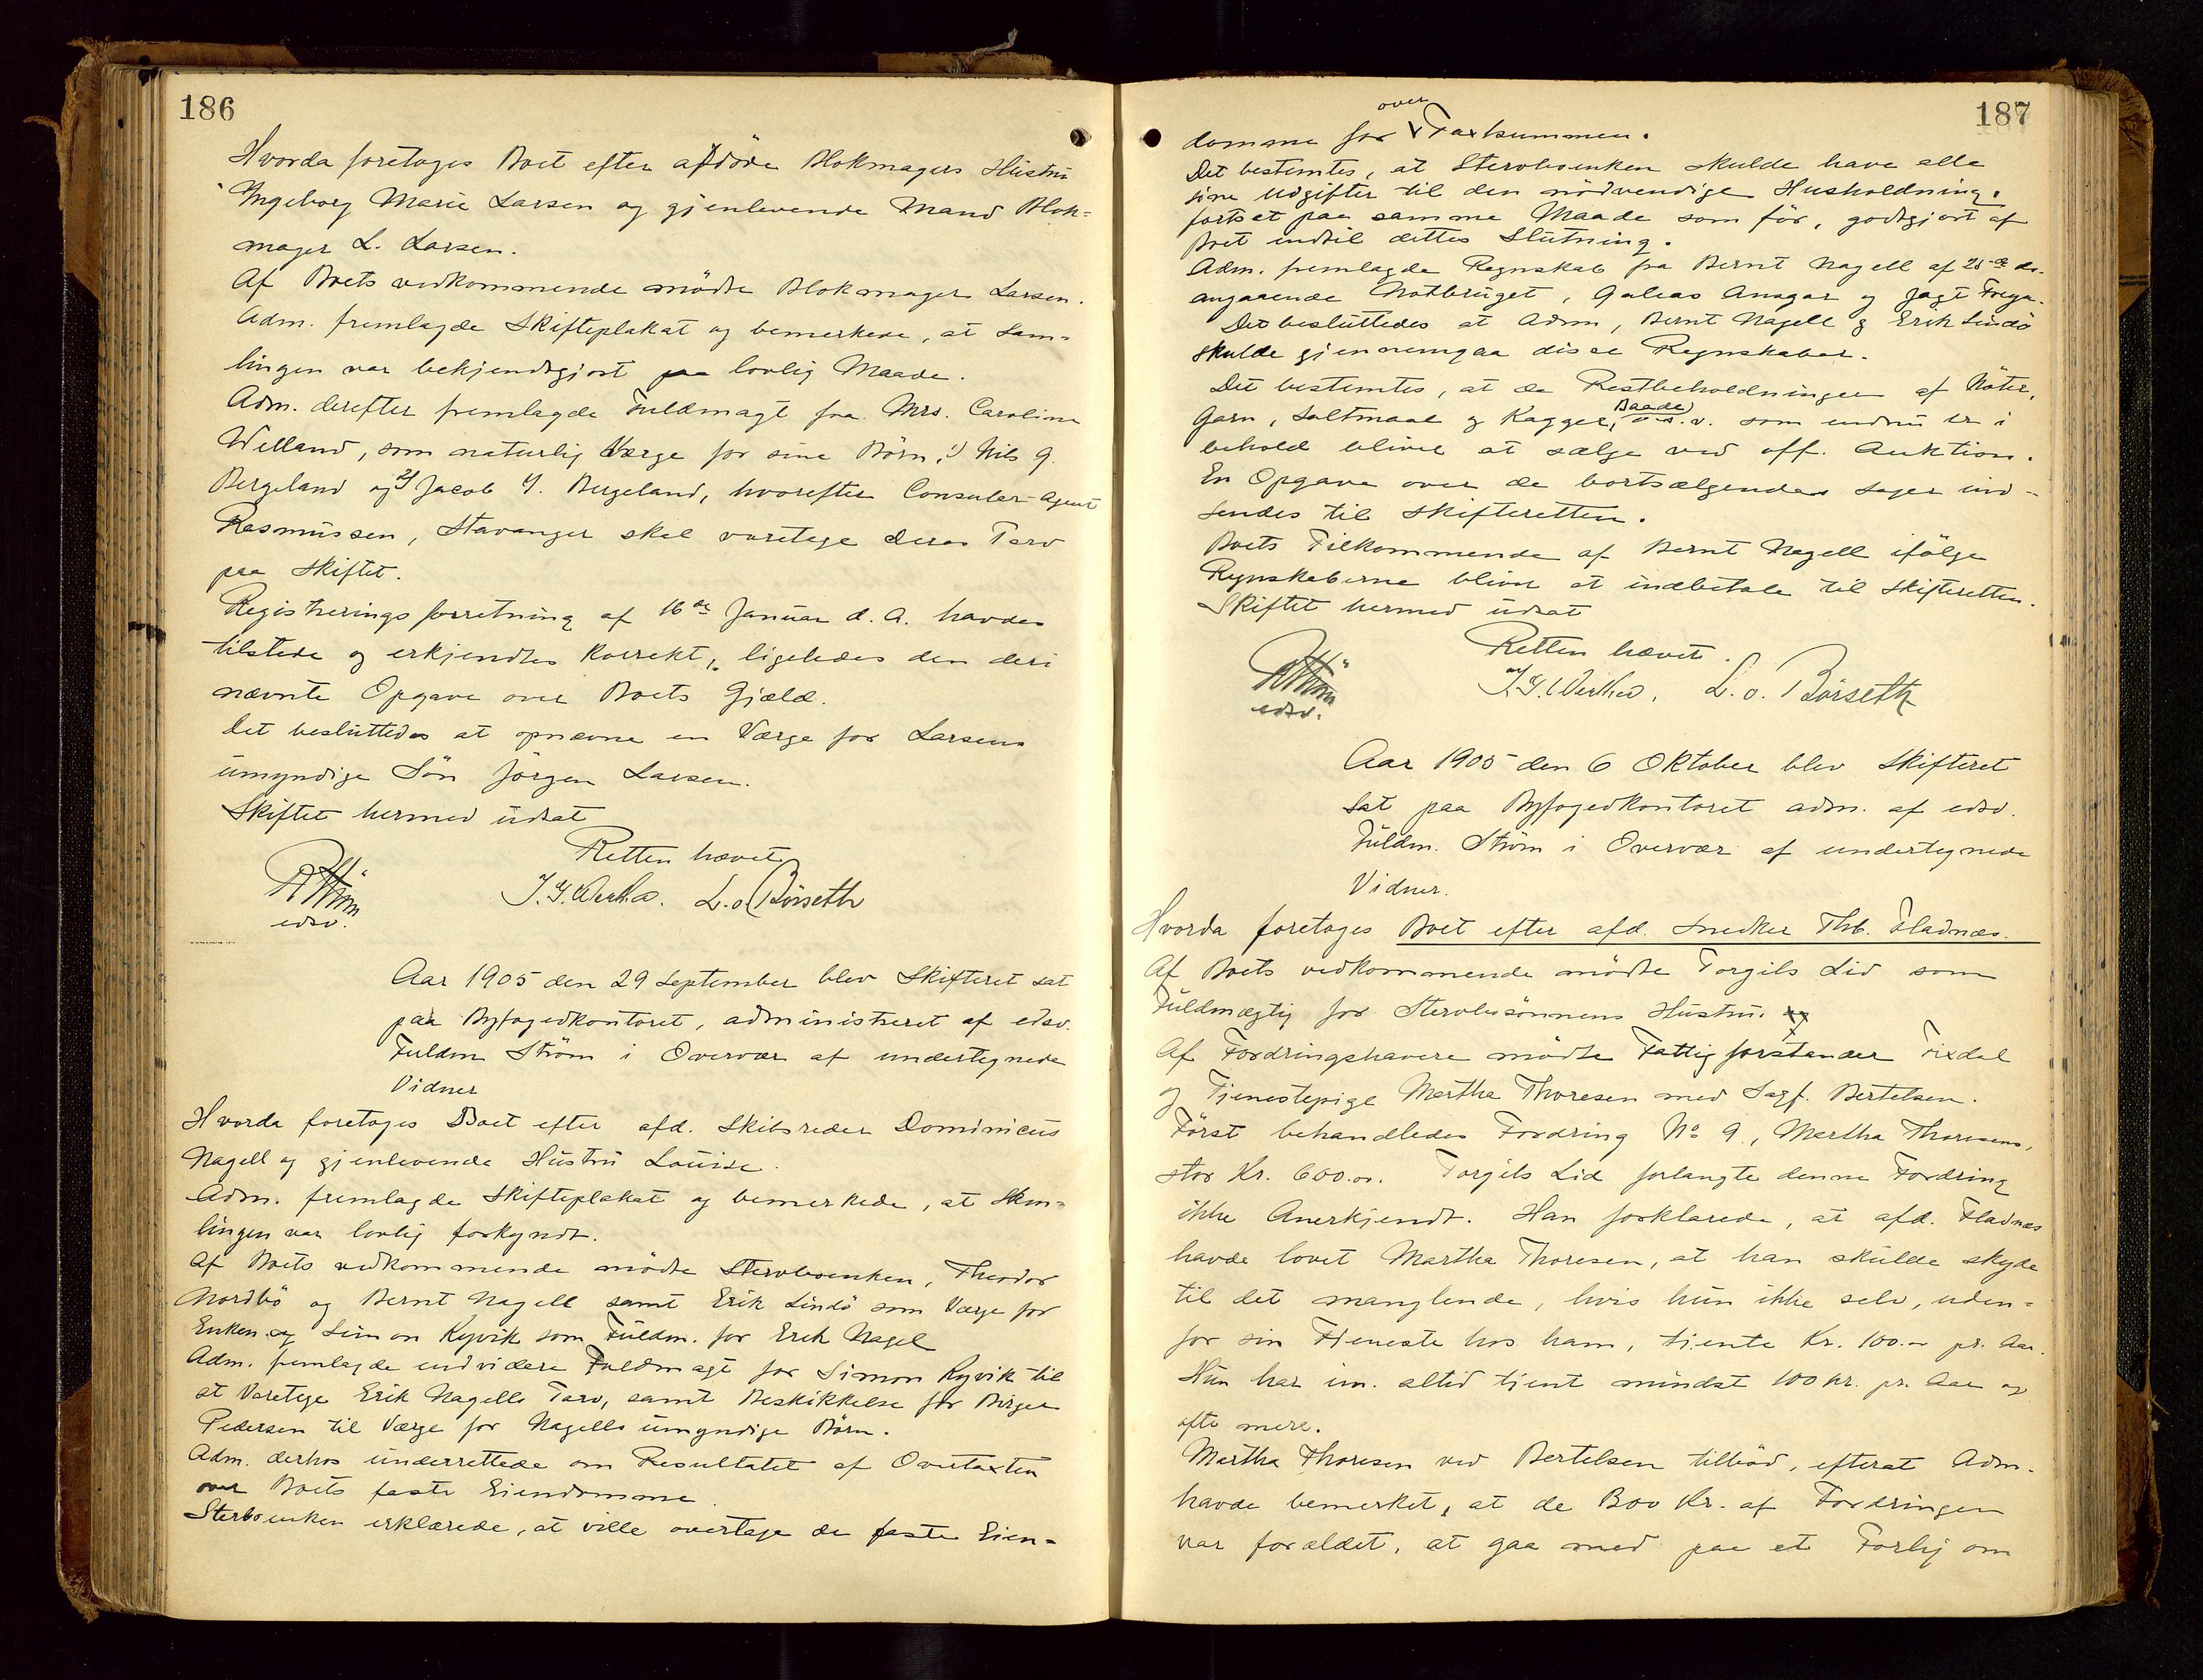 186
Hvorda foretoges Boet efter afdöde Blokmagers Hustru
Ingeborg Marie Larsen og gjenlevende Mand Blok-
mager L. Larsen.
Af Boets vedkommende mödte Blokmager Larsen.
Adm. fremlagde Skifteplakat og bemerkede, at Sam-
lingen var bekjendtgjort paa lovlig Maade.
Adm. derefter fremlagde Fuldmagt fra Mrs. Caroline
Welland, som naturlig Værge for sine Börn, 1) Nils G.
Bergeland og 2) Jacob Y. Bergeland, hvorefter Consular-Agent
Rasmussen, Stavanger skal varetage deres Tarv
paa Skiftet.
Registreringsforretning af 16de Januar d. A. havdes
tilstede og erkjendtes korrekt, ligeledes den deri
nævnte Opgave over Boets Gjæld.
Det besluttedes at opnævne en Værge for Larsens
umyndige Sön Jörgen Larsen.
Skiftet hermed udsat
Retten hævet
edsv. L. O. Börseth
Aar 1905 den 29 September blev Skifteret sat
paa Byfogedkontoret, administreret af edsv.
Fuldm Ström i Overvær af undertegnede
Vidner
Hvorda foretoges Boet efter afd. Skibsreder Dominicus
Nagell og gjenlevende Hustru Louise.
Adm. fremlagde Skifteplakat og bemerkede, at Sam-
lingen var lovlig forkyndt.
Af Boets vedkommende mödte Sterboenken, Theodor
Nordbö og Bernt Nagell samt Erik Lindö som Værge for
Enken og Simon Ryvik som Fuldm. for Erik Nagel
Adm. fremlagde endvidere Fuldmagt for Simon Ryvik til
at Varetage Erik Nagells Tarv, samt Beskikkelse for Birger
Pedersen til Værge for Nagells umyndige Börn.
Adm. derhos underrettede om Resultatet af Overtaxten
over Boets faste Eiendomme.
Sterboenken erklærede, at ville overtage de faste Eien-
187
domme for over Taxtsummen.
Det bestemtes, at Sterboenken skulde have alle
sine Udgifter til den nödvendige Husholdning,
fortsat paa samme Maade som för, godtgjort af
Boet indtil dettes Slutning.
Adm. fremlagde Regnskab fra Bernt Nagell af 25de ds.
angaaende Notbruget, Galeas Ansgar og Jagt Freya.
Det besluttedes at Adm, Bernt Nagell og Erik Lindö
skulde gjennemgaa disse Regnskaber.
Det bestemtes, at de Restbeholdninger af Nöter,
Garn, Saltmaal og Kagger, Baade o.s.v. som endnu er i
behold bliver at sælge ved off. Auktion.
En Opgave over de bortsælgendes Sager ind-
sendes til Skifteretten.
Boets Tilkommende af Bernt Nagell ifölge
Regnskaberne bliver at indbetale til Skifteretten.
Skiftet hermed udsat
Retten hævet.
edsv. L. O. Börseth
Aar 1905 den 6 Oktober blev Skifteret
sat paa Byfogedkontoret adm. af edsv.
Fuldm. Ström i Overvær af undertegnede
Vidner.
Hvorda foretoges Boet efter afd. Snedker Thb. Fladnæs.
Af Boets vedkommende mödte Torgils Lid som
Fuldmægtig for Stervbosönnens Hustru.
Af Fordringshavere mödte Fattigforstander Tixdal
og Tjenestepige Martha Thoresen med Sagf. Bertelsen.
Först behandledes Fordring No 9, Martha Thoresens,
stor Kr. 600.00. Torgils Lid forlangte denne Fordring
ikke Anerkjendt. Han forklarede, at afd. Fladnæs
havde lovet Martha Thoresen, at han skulde skyde
til det manglende, hvis hun ikke selv, uden-
for sin Tjeneste hos ham, tjente Kr. 100.– pr. Aar.
Hun har im. altid tjent mindst 100 kr. pr. Aar og
ofte mere.
Martha Thoresen ved Bertelsen tilböd, efterat Adm.
havde bemerket, at de 300 Kr. af Fordringen
var forældet, at gaa med paa et Forlig om